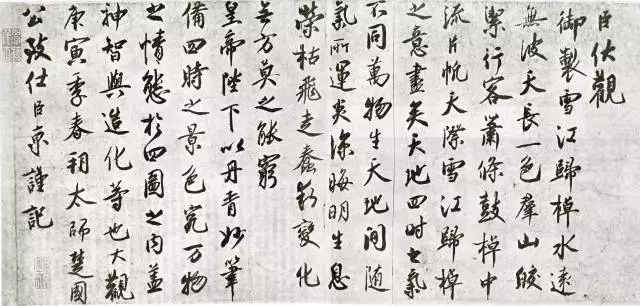 臣伏觀
御製雪江歸棹水遠
無波天長一色羣山皎
潔行客蕭條鼓棹中
流片帆天際雪江歸棹
之意盡矣天地四時之氣
不同萬物生天地間隨
氣所運炎涼晦明生息
榮枯飛走蠢動變化
无方莫之能窮
皇帝陛下以丹青妙筆
備四時之景色究万物
之情態於四圖之内蓋
神智與造化等也大觀
庚寅季春朔太師楚國
公致仕臣京謹記